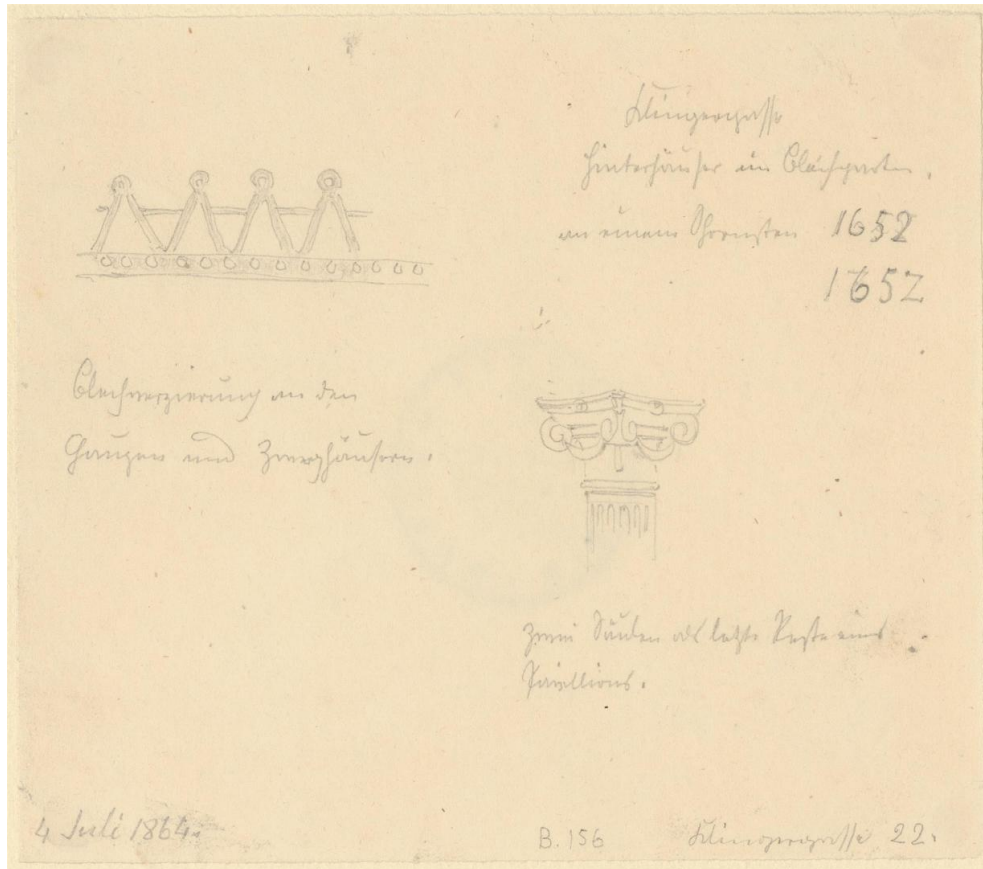 Klingergasse
Hinterhäuser im Bleichgarten,
an einem Schornstein 1652
1652
Blechverzierung an den
Gaupen und Zwerghäusern.
Zwei Säulen als letzte Reste eines
Pavillions.
4 Juli 1864.
B. 156
Klingergasse 22.